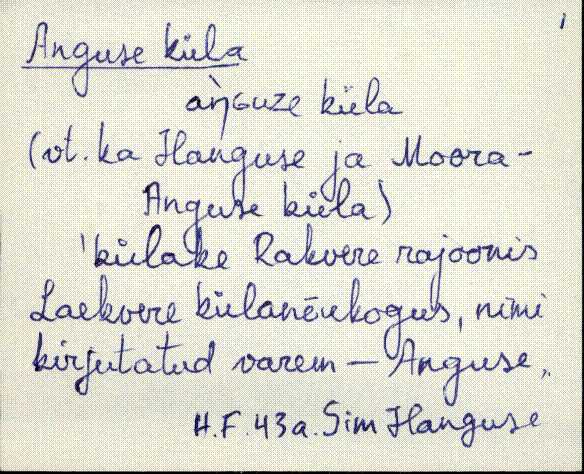 1
Anguse küla
àŋɢuze küla
(vt. ka Hanguse ja Moora-
Anguse küla)
'külake Rakvere rajoonis
Laekvere külanõukogus, nimi
kirjutatud varem — Anguse,,
H.F. 43a. Sim Hanguse